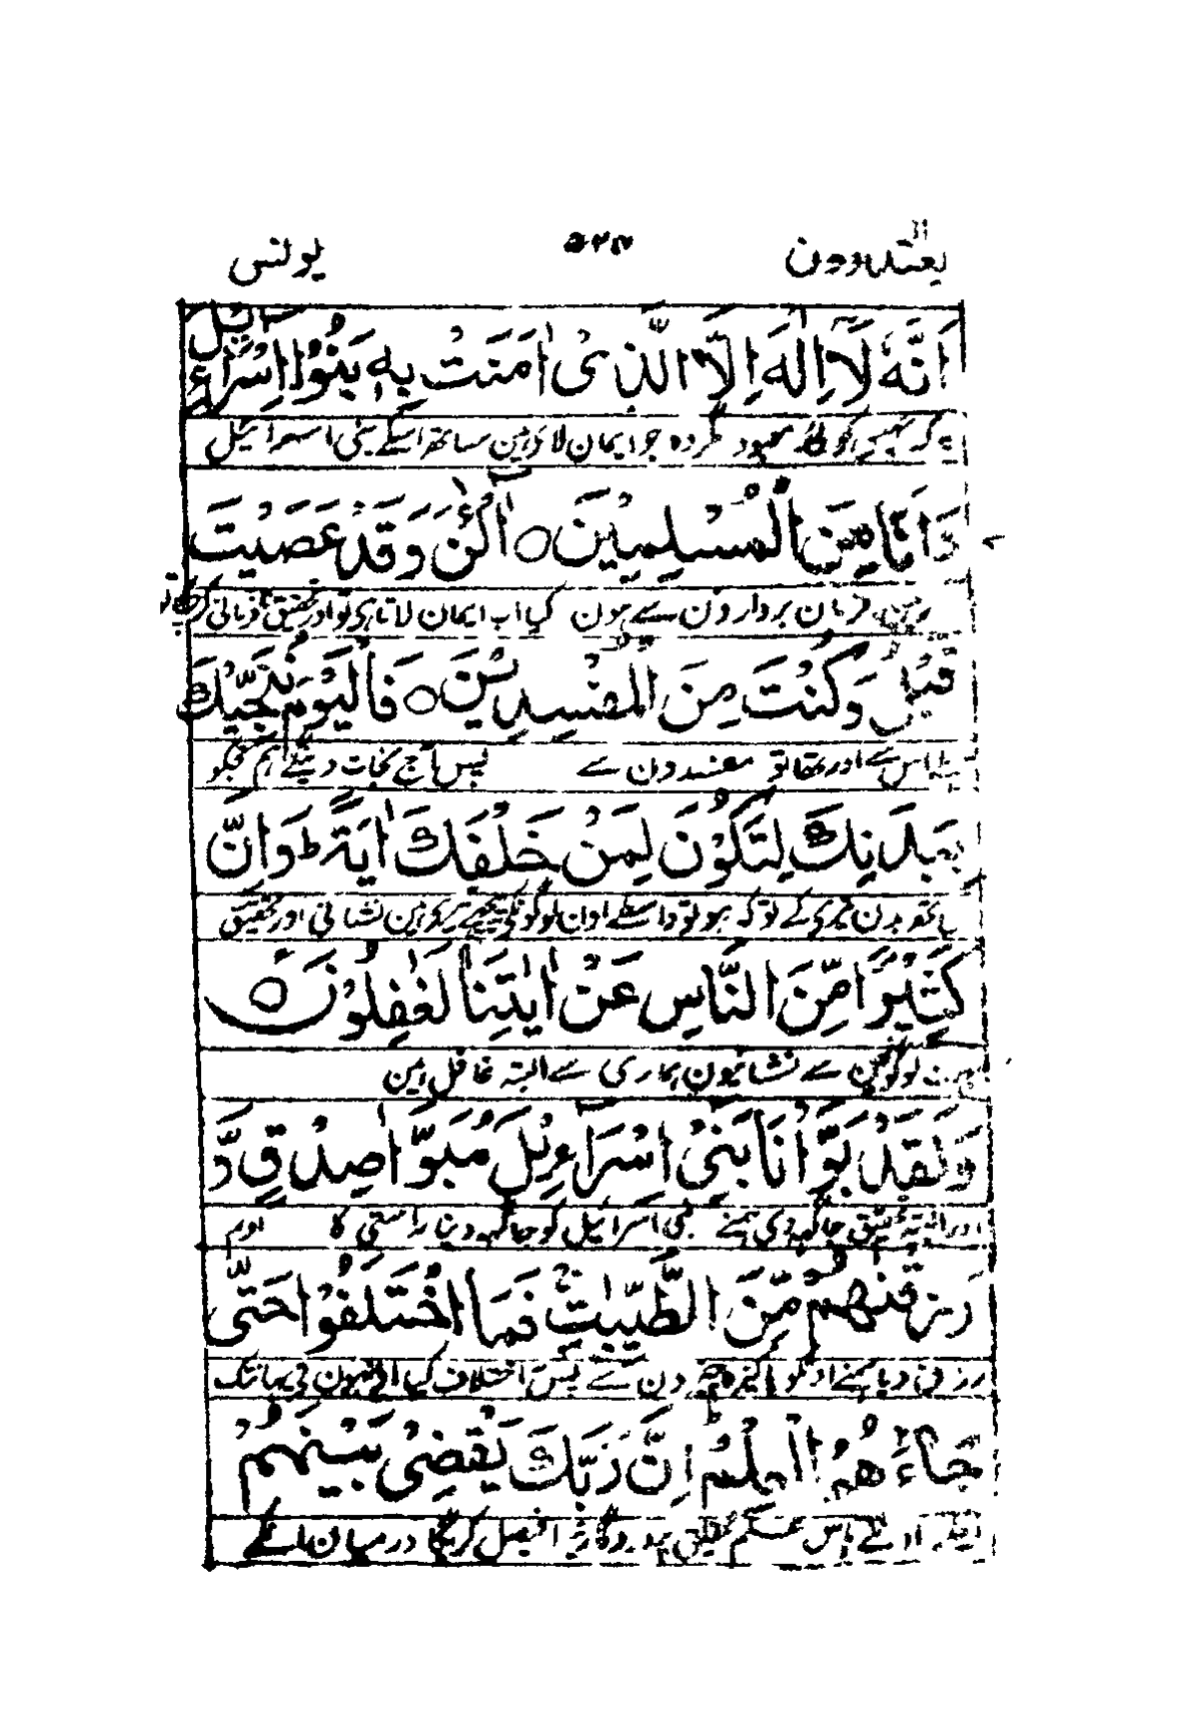 یعتذرون ۱۱
۵۲۷
یونس
اَنَّهٗ لَاۤ اِلٰهَ اِلَّا الَّذِیْ اٰمَنَتْ بِهٖ بَنُوْۤا اِسْرَآءِیْلَ
یہ کہ نہین کوئی معبود مگر وہ جو ایمان لائے ہین ساتھ اسکے بنی اسرائیل
وَ اَنَا مِنَ الْمُسْلِمِیْنَ ○ آٰلْـٰٔنَ وَ قَدْ عَصَیْتَ
فرمان بردارون سے ہون کیا اب ایمان لاتا ہی تو اور تحقیق نافرمانی کرچکا تو
قَبْلُ وَ كُنْتَ مِنَ الْمُفْسِدِیْنَ ○ فَالْیَوْمَ نُنَجِّیْكَ
اس سے اور تھا تو مفسدون سے پس آج نجات دینگے ہم تجکو
بِبَدَنِكَ لِتَكُوْنَ لِمَنْ خَلْفَكَ اٰیَةً ؕ وَ اِنَّ
ساتھ بدن تیری کے تو کہ ہو تو واسطے اون لوگونکے پیچھے تیرے ہین نشانی اور تحقیق
كَثِیْرًا مِّنَ النَّاسِ عَنْ اٰیٰتِنَا لَغٰفِلُوْنَ ○
بہت لوگونمین سے نشانیون ہماری سے البتہ غافل ہین
وَ لَقَدْ بَوَّاْنَا بَنِیْۤ اِسْرَآءِیْلَ مُبَوَّاَ صِدْقٍ وَّ
اور البتہ تحقیق جاگہہ دی ہمنے بنی اسرائیل کو جاگہہ دینا راستی کا اور
رَزَقْنٰهُمْ مِّنَ الطَّیِّبٰتِ ۚ فَمَا اخْتَلَفُوْا حَتّٰی
رزق دیا ہمنے اونکو پاکیزہ چیزون سے پس اختلاف کیا اونہون نی یہانتک
جَآءَهُمُ الْعِلْمُ ؕ اِنَّ رَبَّكَ یَقْضِیْ بَیْنَهُمْ
پاس علم تحقیق پروردگار تیرا فیصل کریگا درمیان اونکے